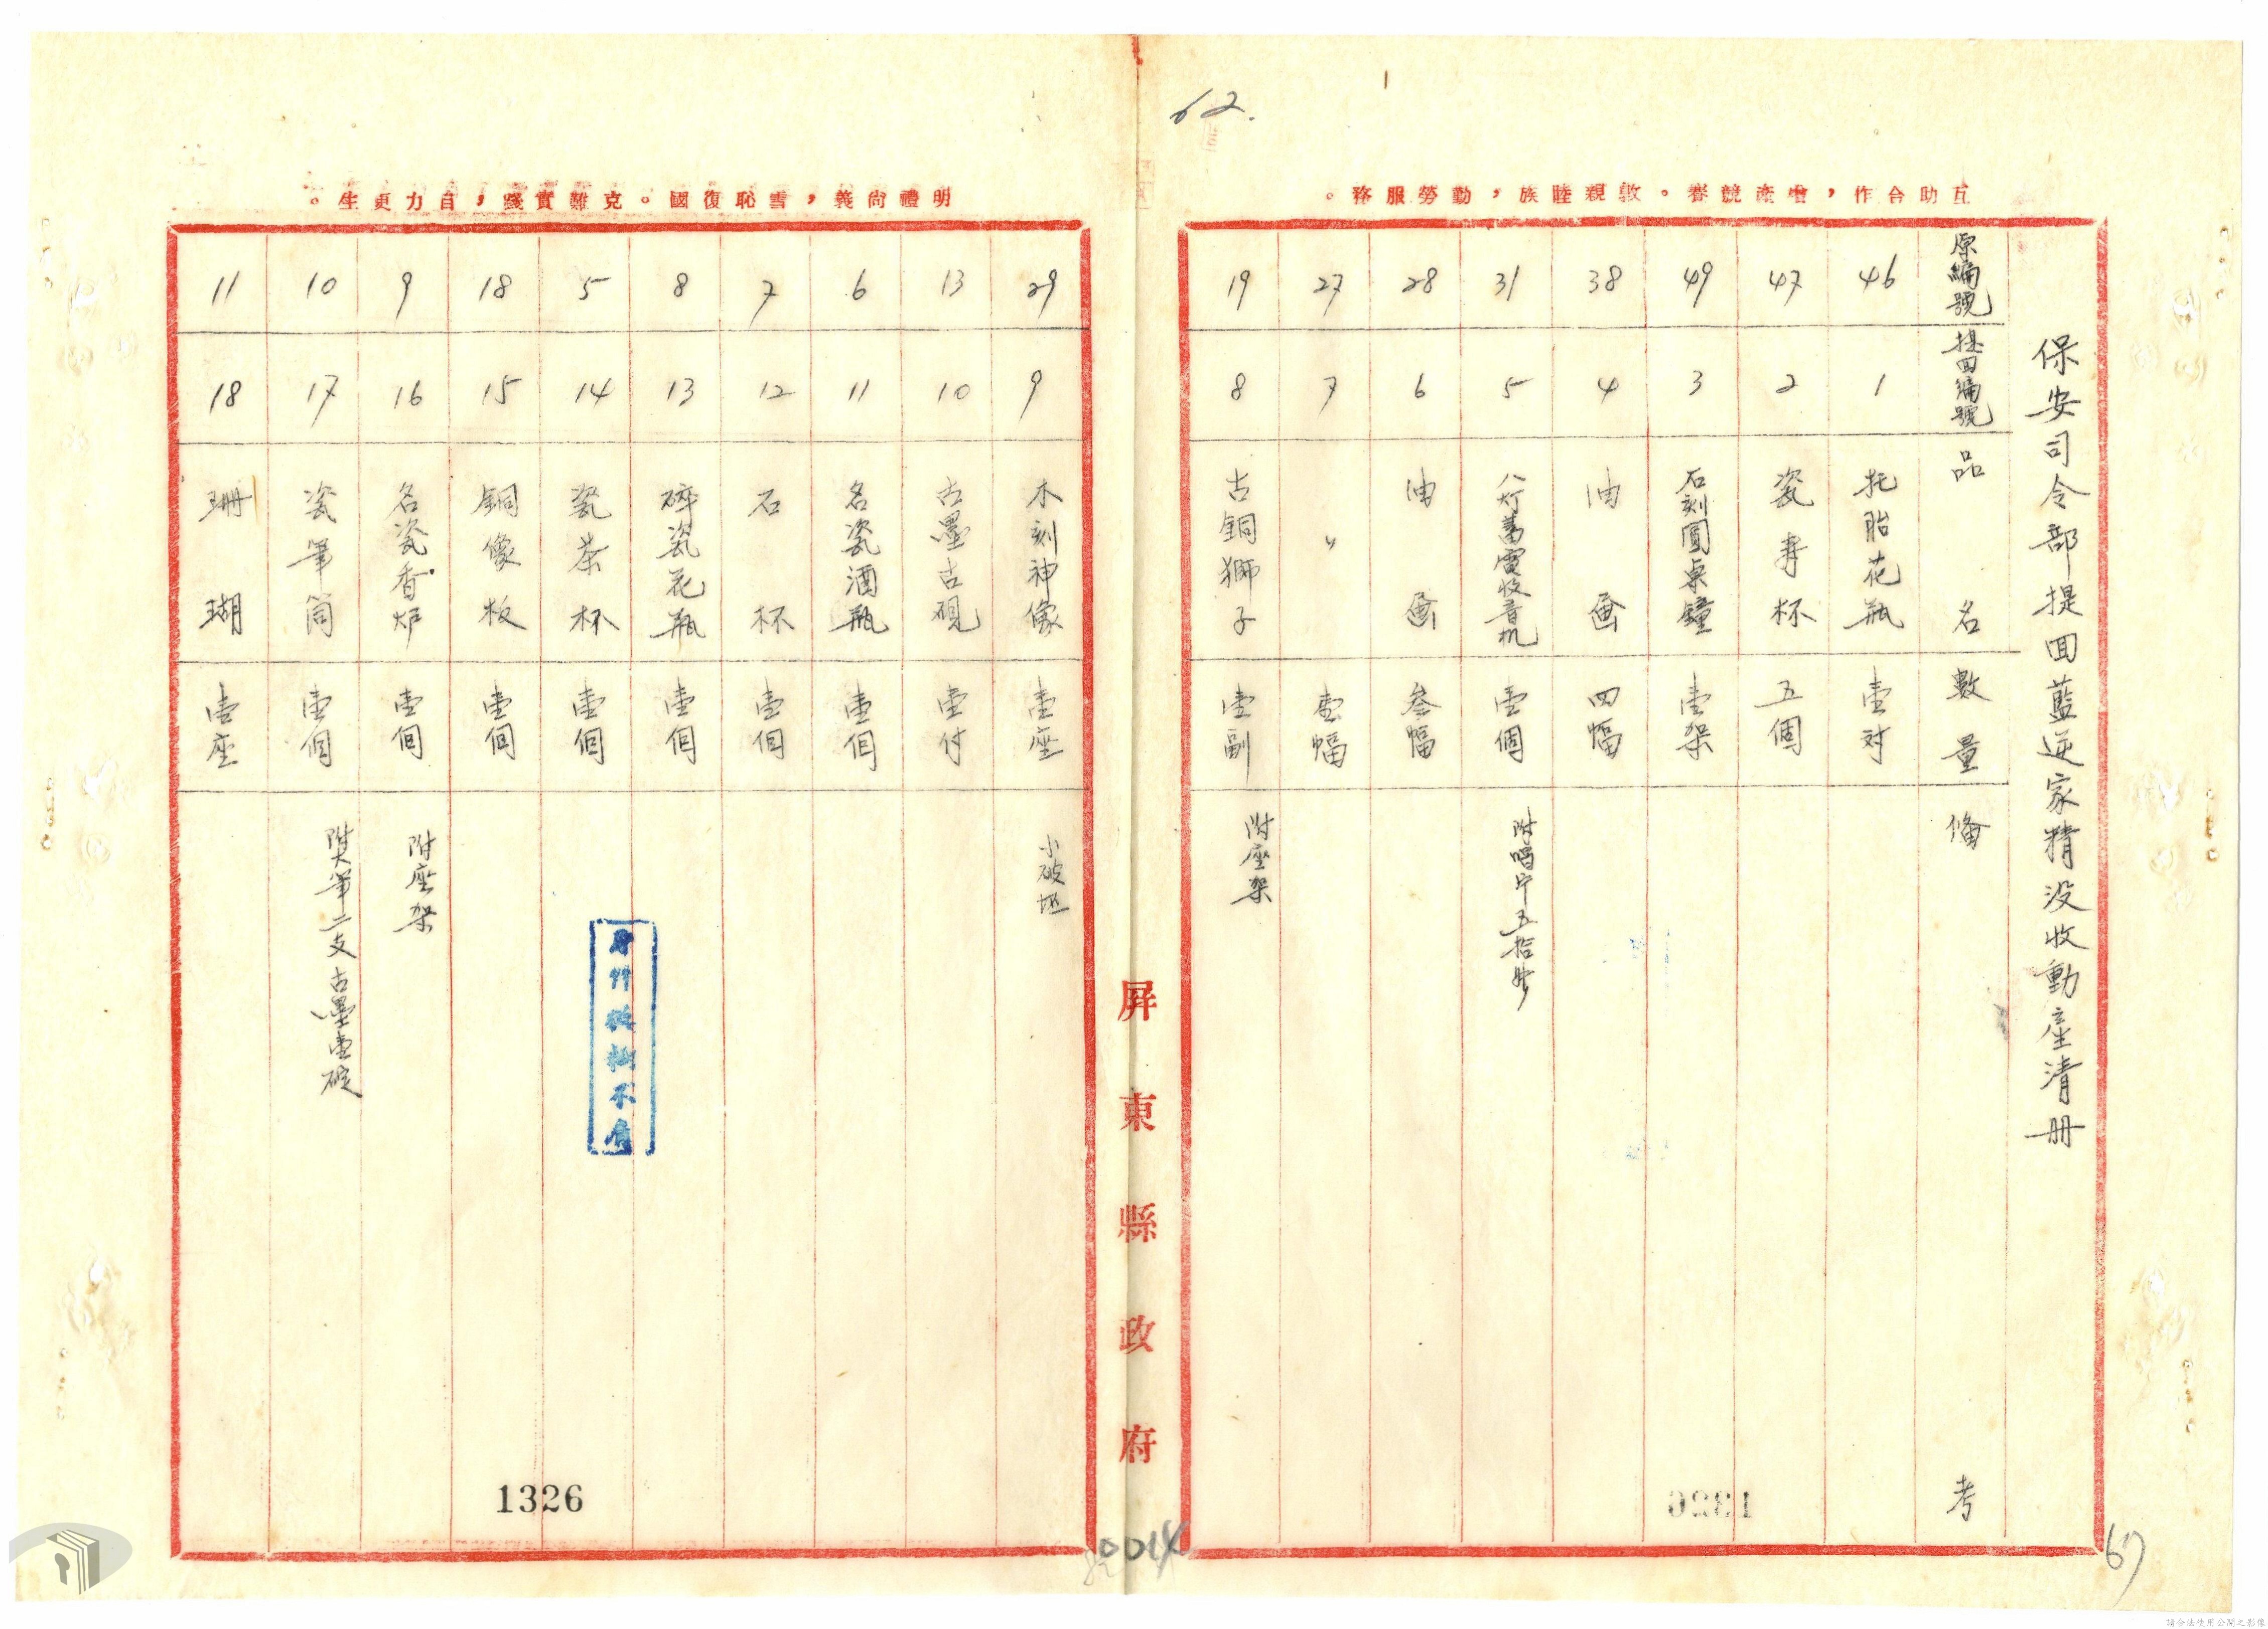 62.
互助合作，增產競賽。敦親睦族，勤勞服務。
保安司令部提回藍逆家精没收動產清册
原編號 提回編號 品名 數量 備考
46 1 托胎花瓶 壹对
47 2 瓷寿杯 五個
49 3 石刻圓桌鐘 壹架
38 4 油画 四幅
31 5 八灯蓄電收音机 壹個 附唱片五拾
28 6 油画 叁幅
27 7 〃 壹幅
19 8 古銅獅子 壹副 附座架
屏東縣政府
明禮尚義，雪恥復國。克難實踐，自力更生。
29 9 木刻神像 壹座 小破坯
13 10 古墨古硯 壹付
6 11 名瓷酒瓶 壹個
7 12 石杯 壹個
8 13 碎瓷花瓶 壹個
5 14 瓷茶杯 壹個
18 15 銅像板 壹個
9 16 名瓷香炉 壹個 附座架
10 17 瓷筆筒 壹個 附大筆二支古墨壹碇
11 18 珊瑚 壹座
1326
0014
67
請合法使用公開之影像